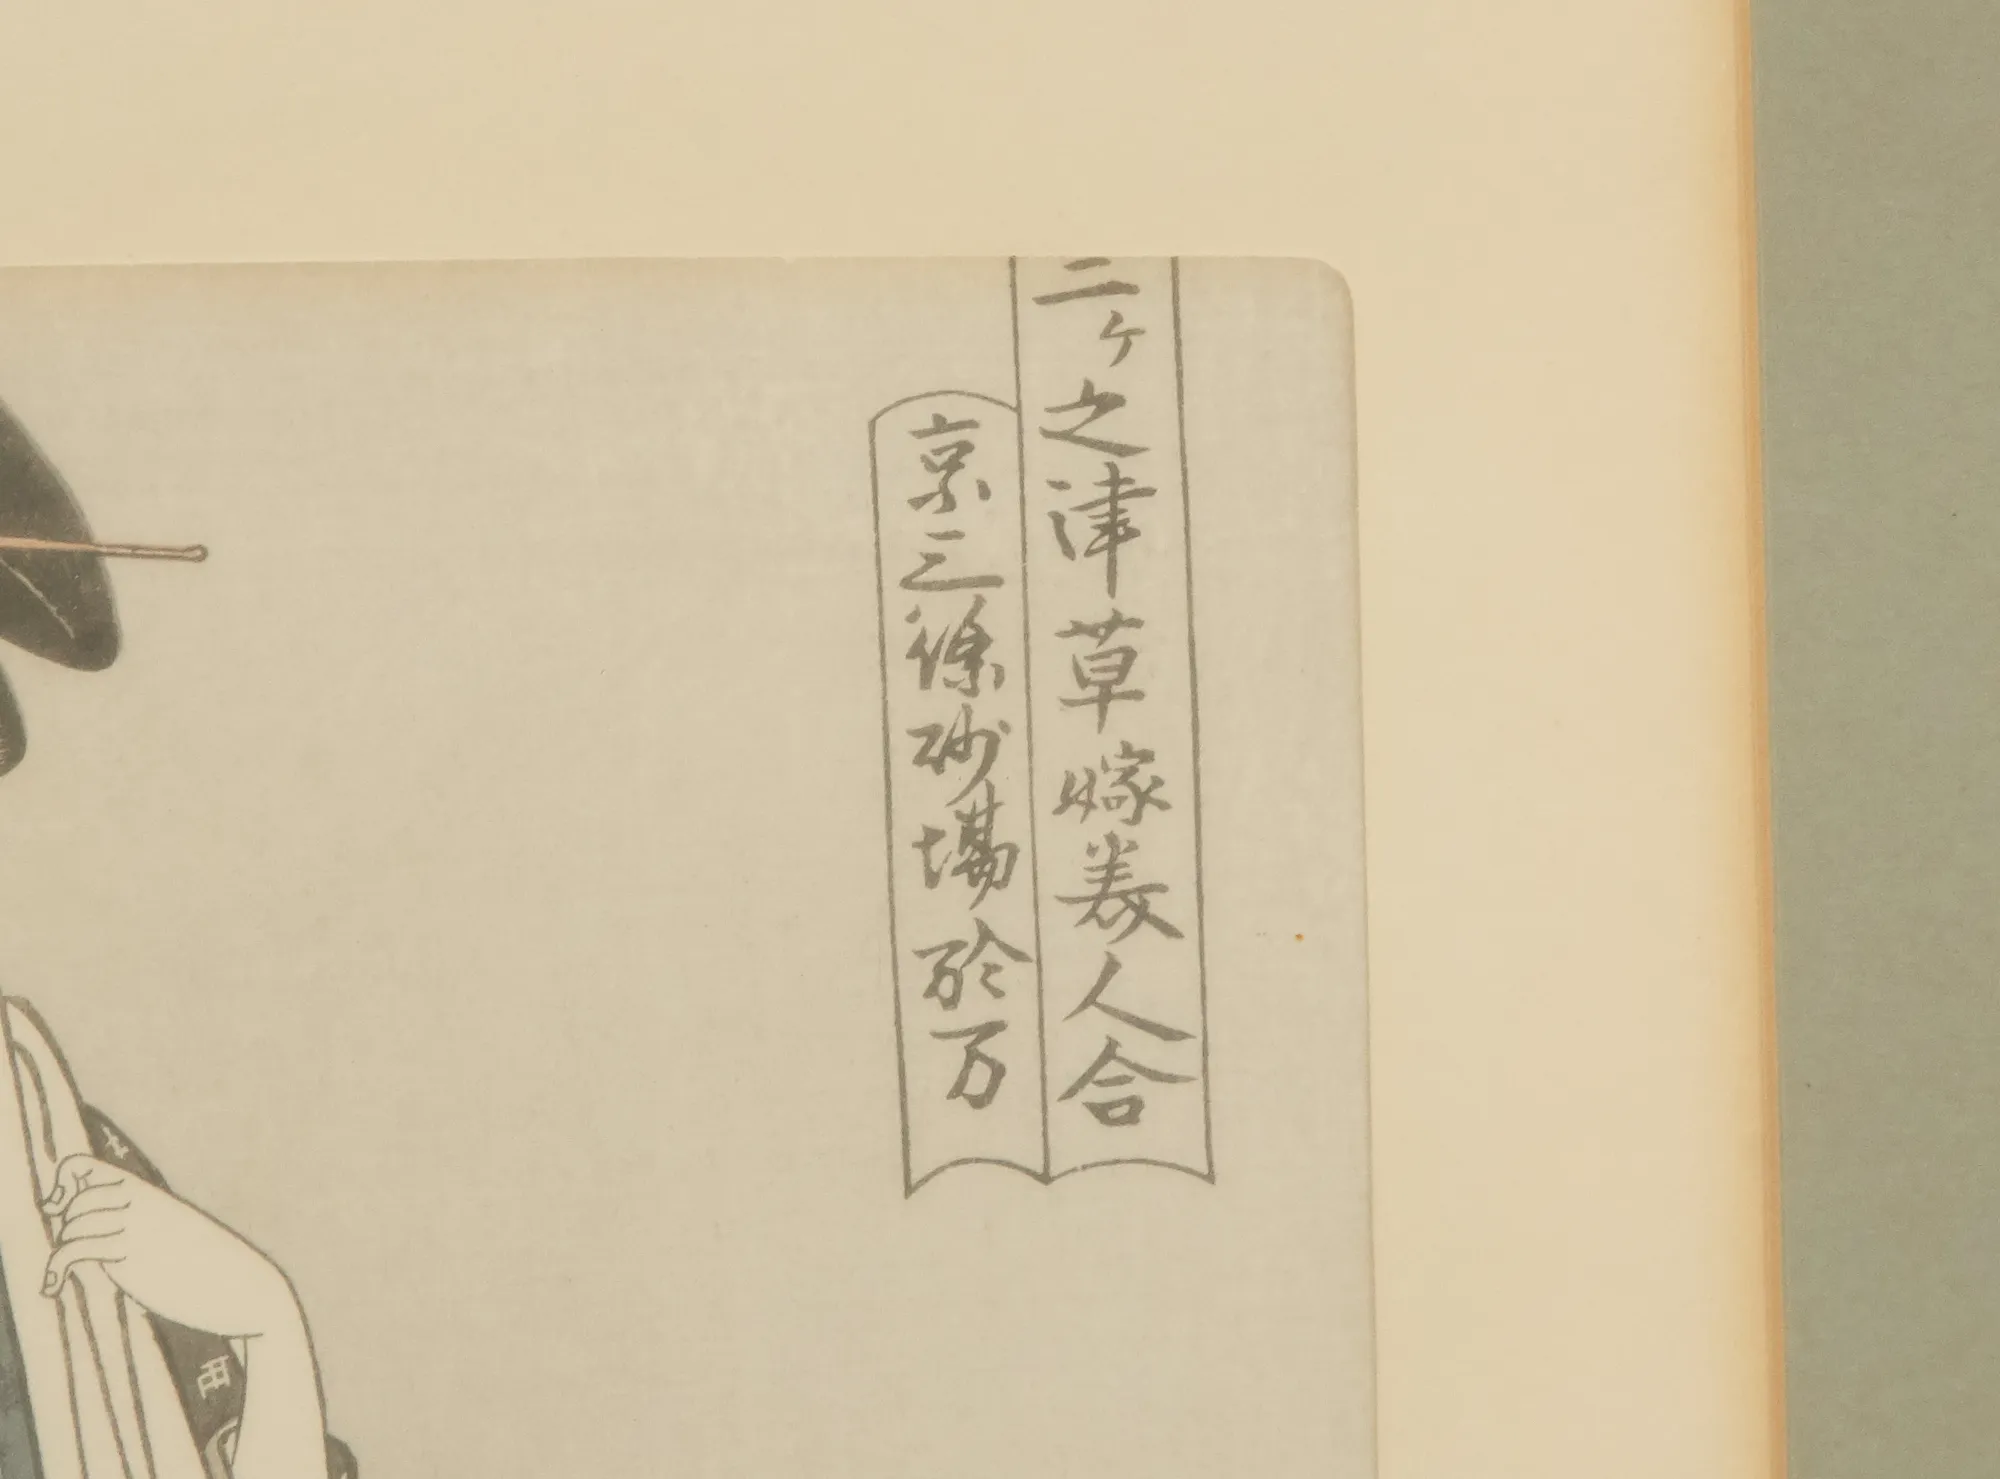 三ヶ之津草嫁美人合
京三條砂場於万